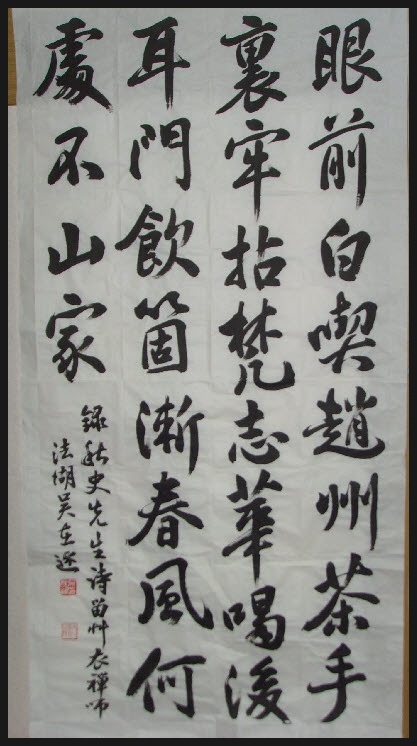 眼前白喫趙州茶手
裏牢拈梵志華喝後
耳門飲箇漸春風何
處不山家
錄秋史先生詩留艸衣禪師
法湖吳在